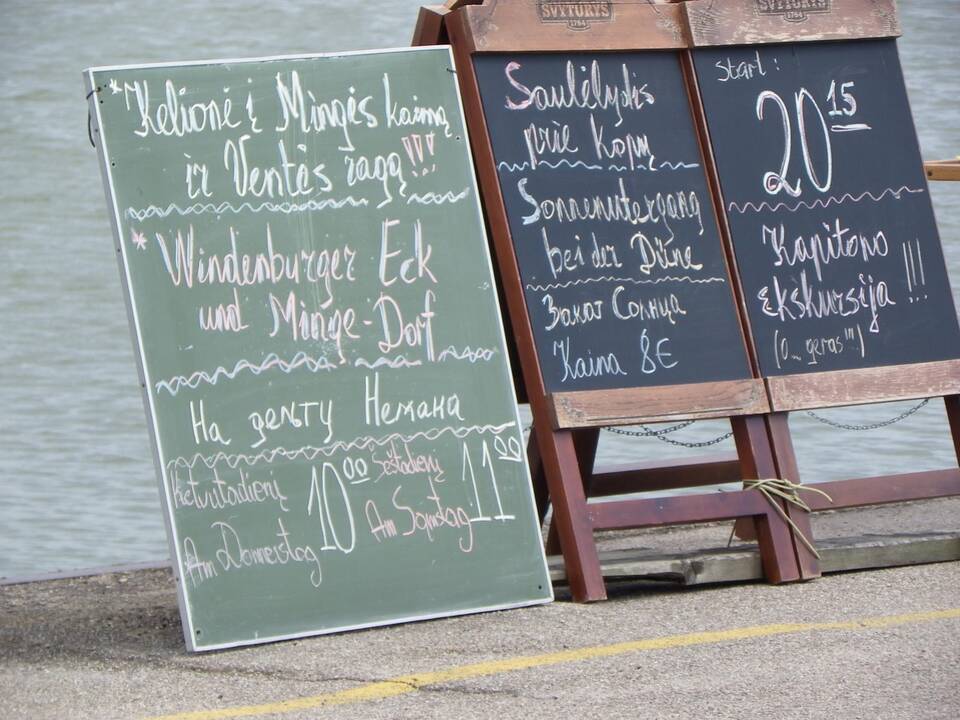 *Kelionė į Mingės kaimą
ir Ventės ragą!!!
*Windenburger Eck
und Minge-Dorf
На дельту Немана
Ketvirtadienį 10⁰⁰ Šeštadienį 11⁰⁰
Am Donnerstag Am Samstag
SVYTURYS
1784
Saulėlydis
prie Kopų
Sonnenutergang
bei der Düne
Закат Солнца
Kaina 8€
SVYTURYS
1784
start :
20¹⁵
Kapitono
ekskursija !!!
(O... geras!!!)